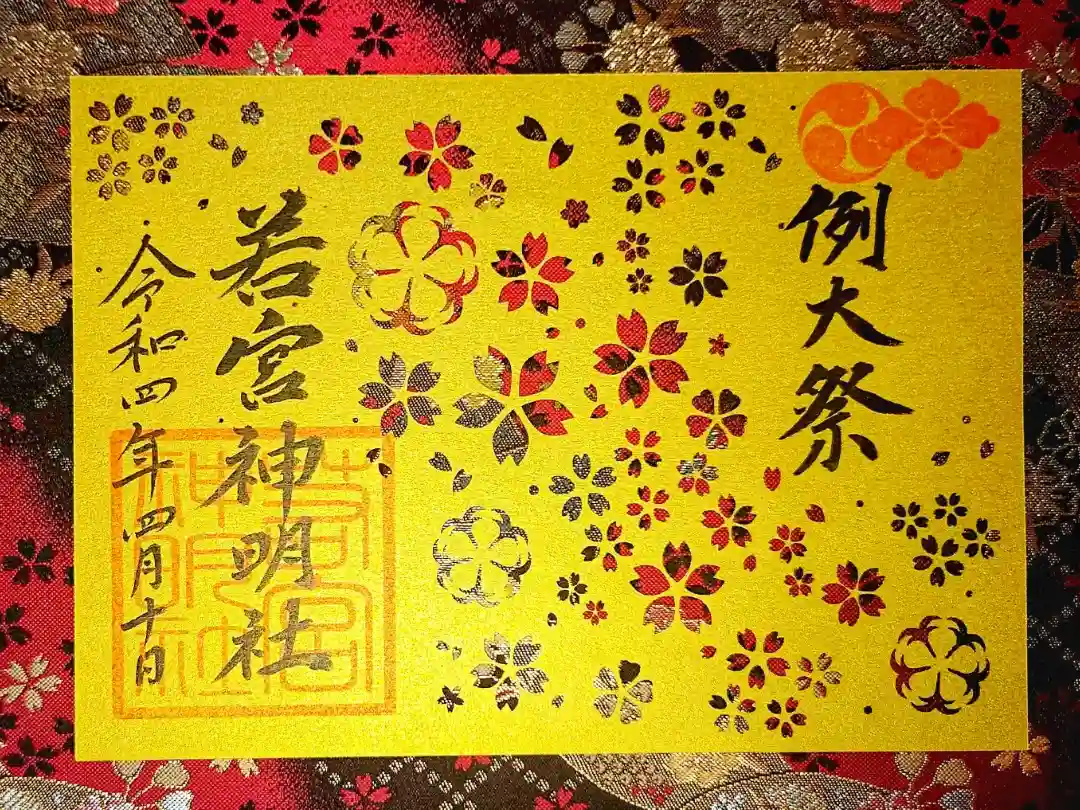 例大祭
若宮神明社
令和四年四月十日
若宮神明社